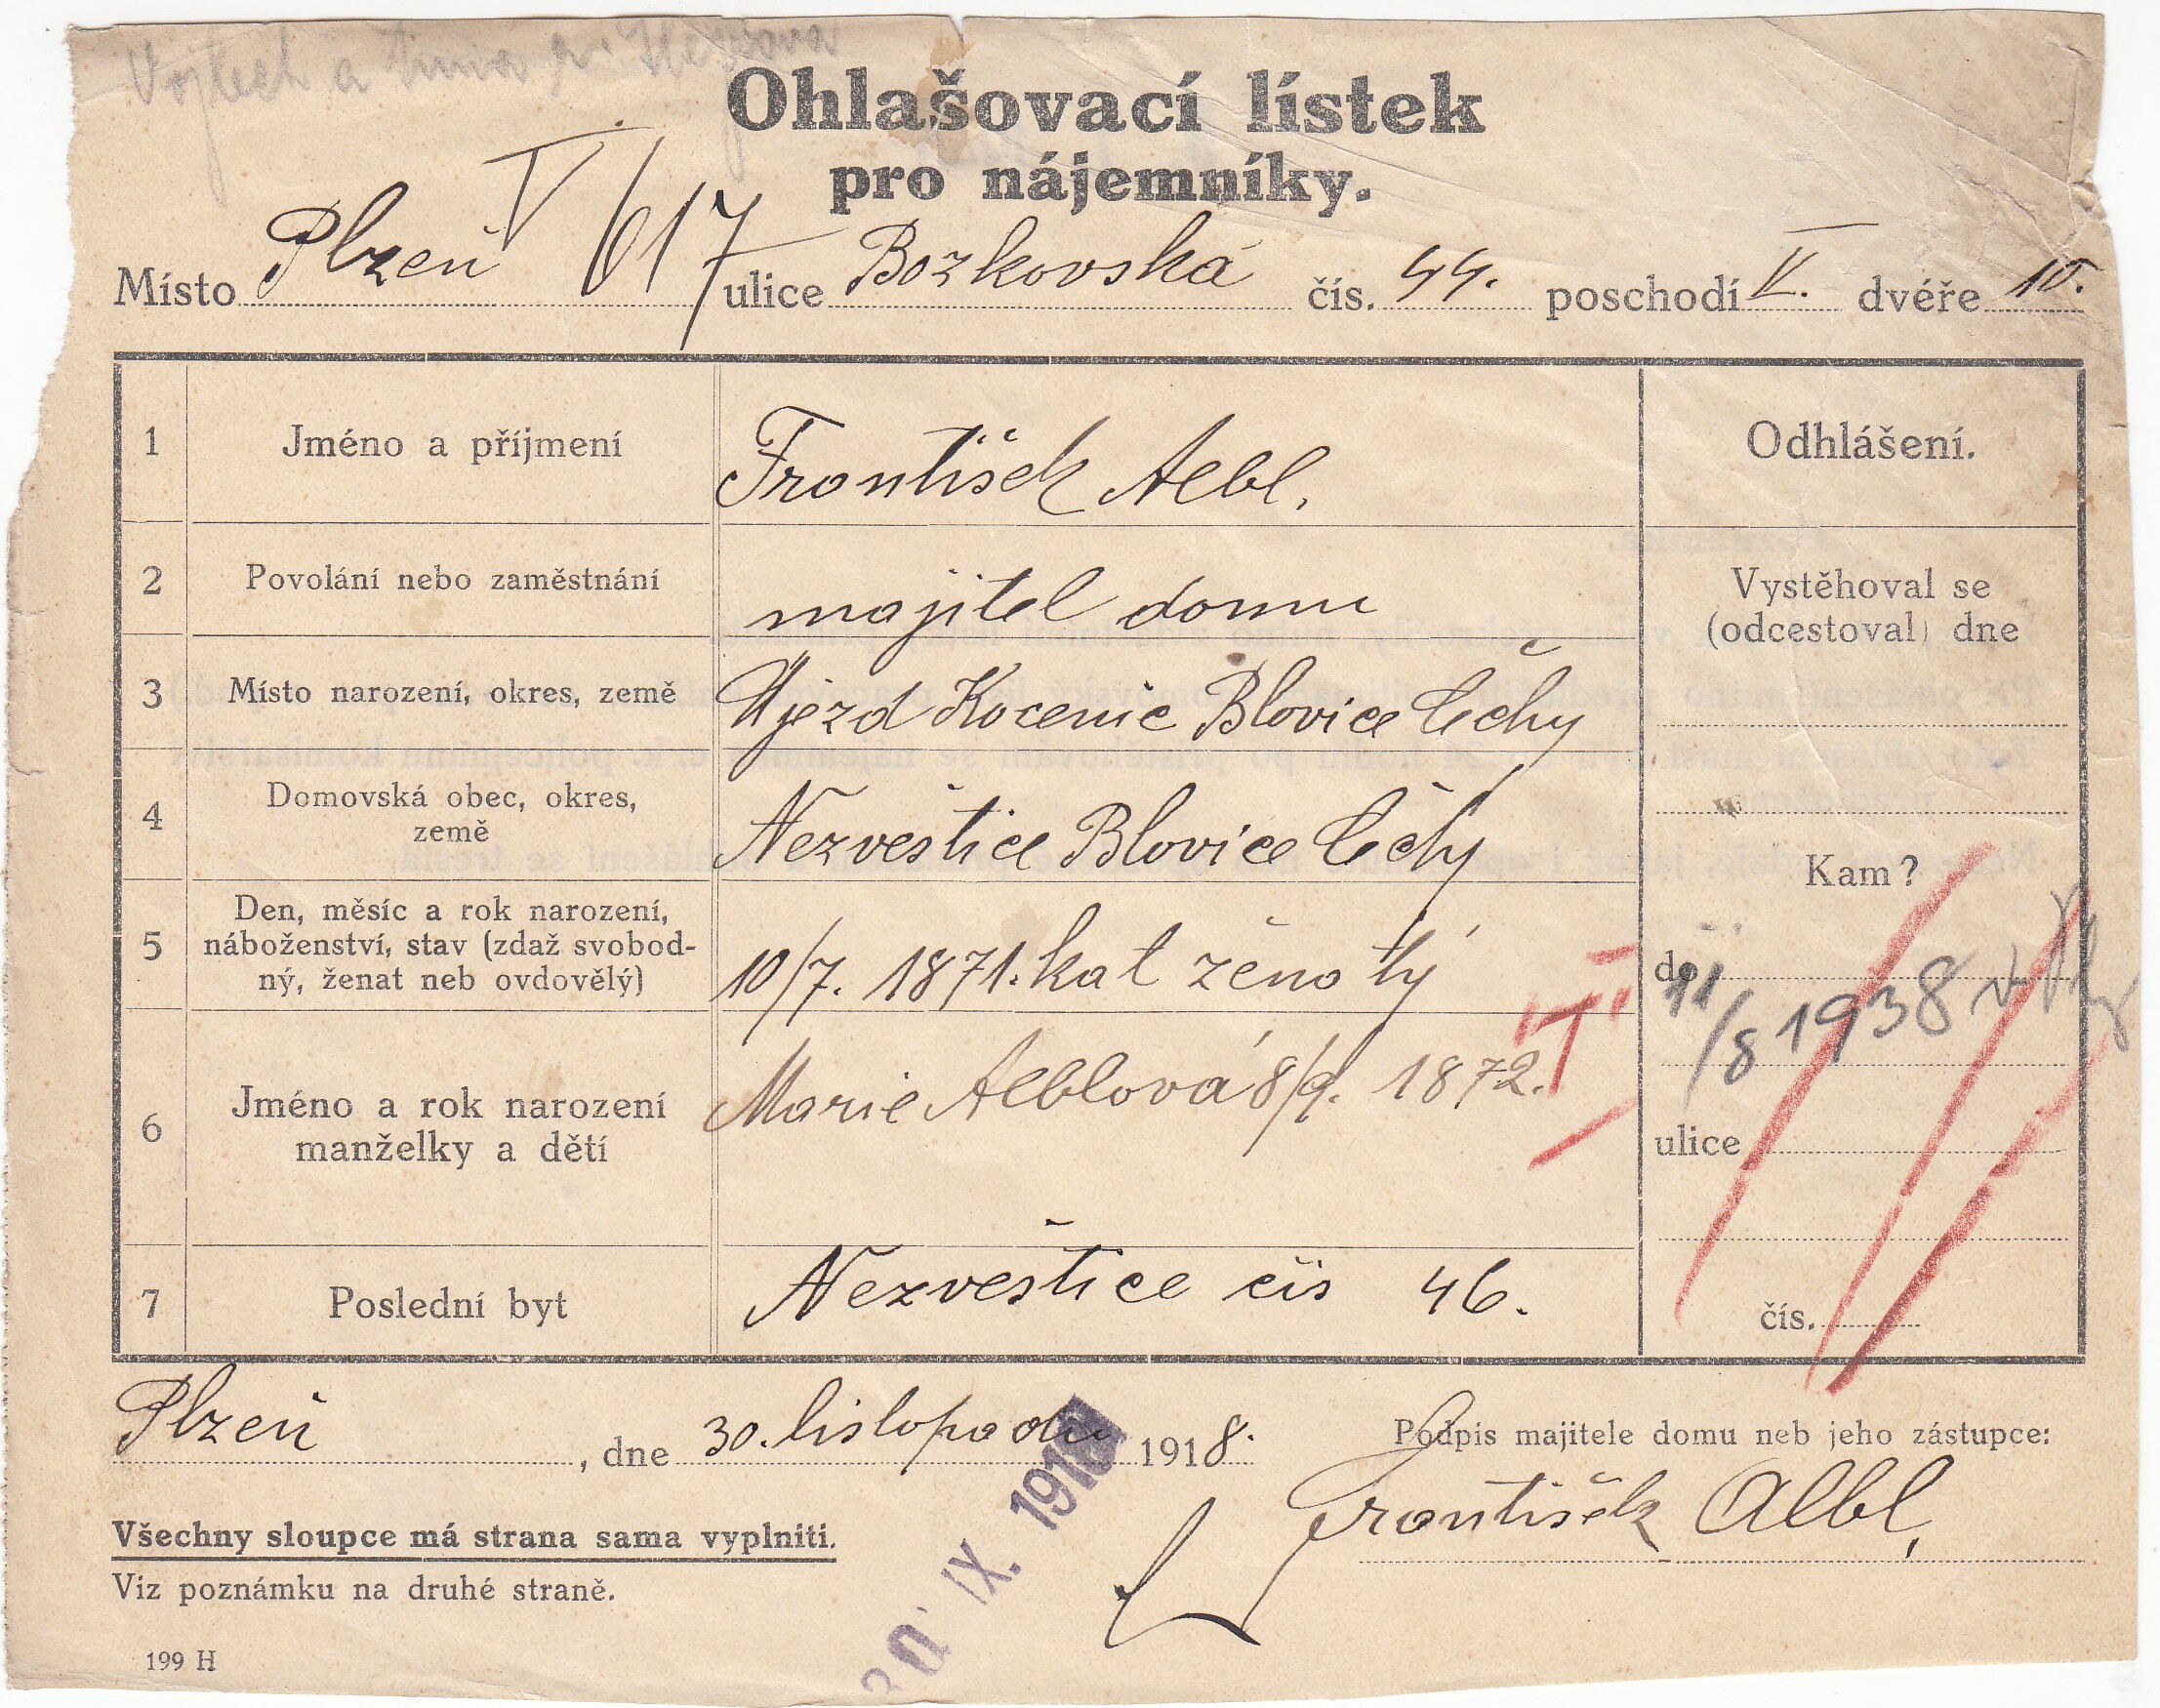 Vojtěch a
Ohlašovací lístek
pro nájemníky.
Místo Plzeň V/617 ulice Bozkovská čís. 44. poschodí V. dvéře 10.
1 Jméno a příjmení František Aebl. Odhlášení.
2 Povolání nebo zaměstnání majitel domu Vystěhoval se
(odcestoval) dne
3 Místo narození, okres, země Ujezd Kocenic Blovice Čechy
4 Domovská obec, okres,
země Nezvěstice Blovice Čechy
Kam?
5 Den, měsíc a rok narození,
náboženství, stav (zdaž svobod-
ný, ženat neb ovdovělý) 10/7. 1871. kat ženatý
do 11/8 1938
6 Jméno a rok narození
manželky a dětí Marie Aeblová 8/9. 1872.
ulice
7 Poslední byt Nezvěstice čís 46.
čís.
Plzeň, dne 30. listopadu 1918. Podpis majitele domu neb jeho zástupce:
František Albl,
30. IX. 1918
Všechny sloupce má strana sama vyplniti.
Viz poznámku na druhé straně.
199 H